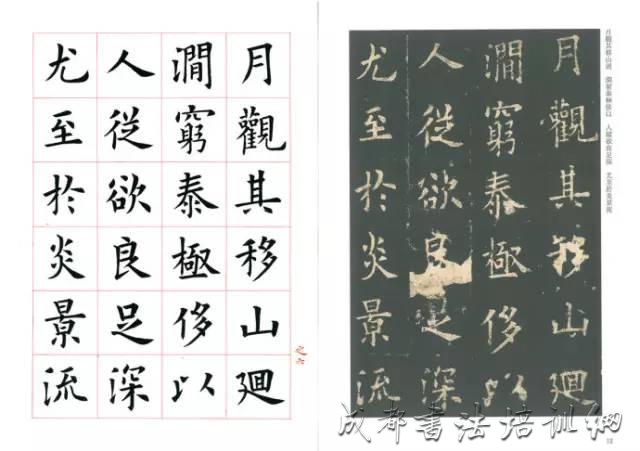 月觀其移山廻
澗窮泰極侈以
人從欲良足深
尤至於炎景流
之六
月觀其移山廻
澗窮泰極侈以
人從欲良足深
尤至於炎景流
月觀其移山廻 澗窮泰極侈以 人從欲良足深 尤至於炎景流
成都書法培训網